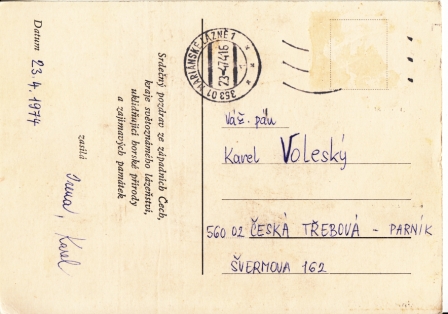 Srdečný pozdrav ze západních Čech,
kraje světoznámého lázeňství,
uklidňující horské přírody
a zajímavých památek
zasílá
Irena, Karel
Datum 23. 4. 1974
353 01 MARIÁNSKÉ LÁZNĚ 1
Váž. pán
Karel Voleský
560 02 ČESKÁ TŘEBOVÁ - PARNÍK
ŠVERMOVA 162